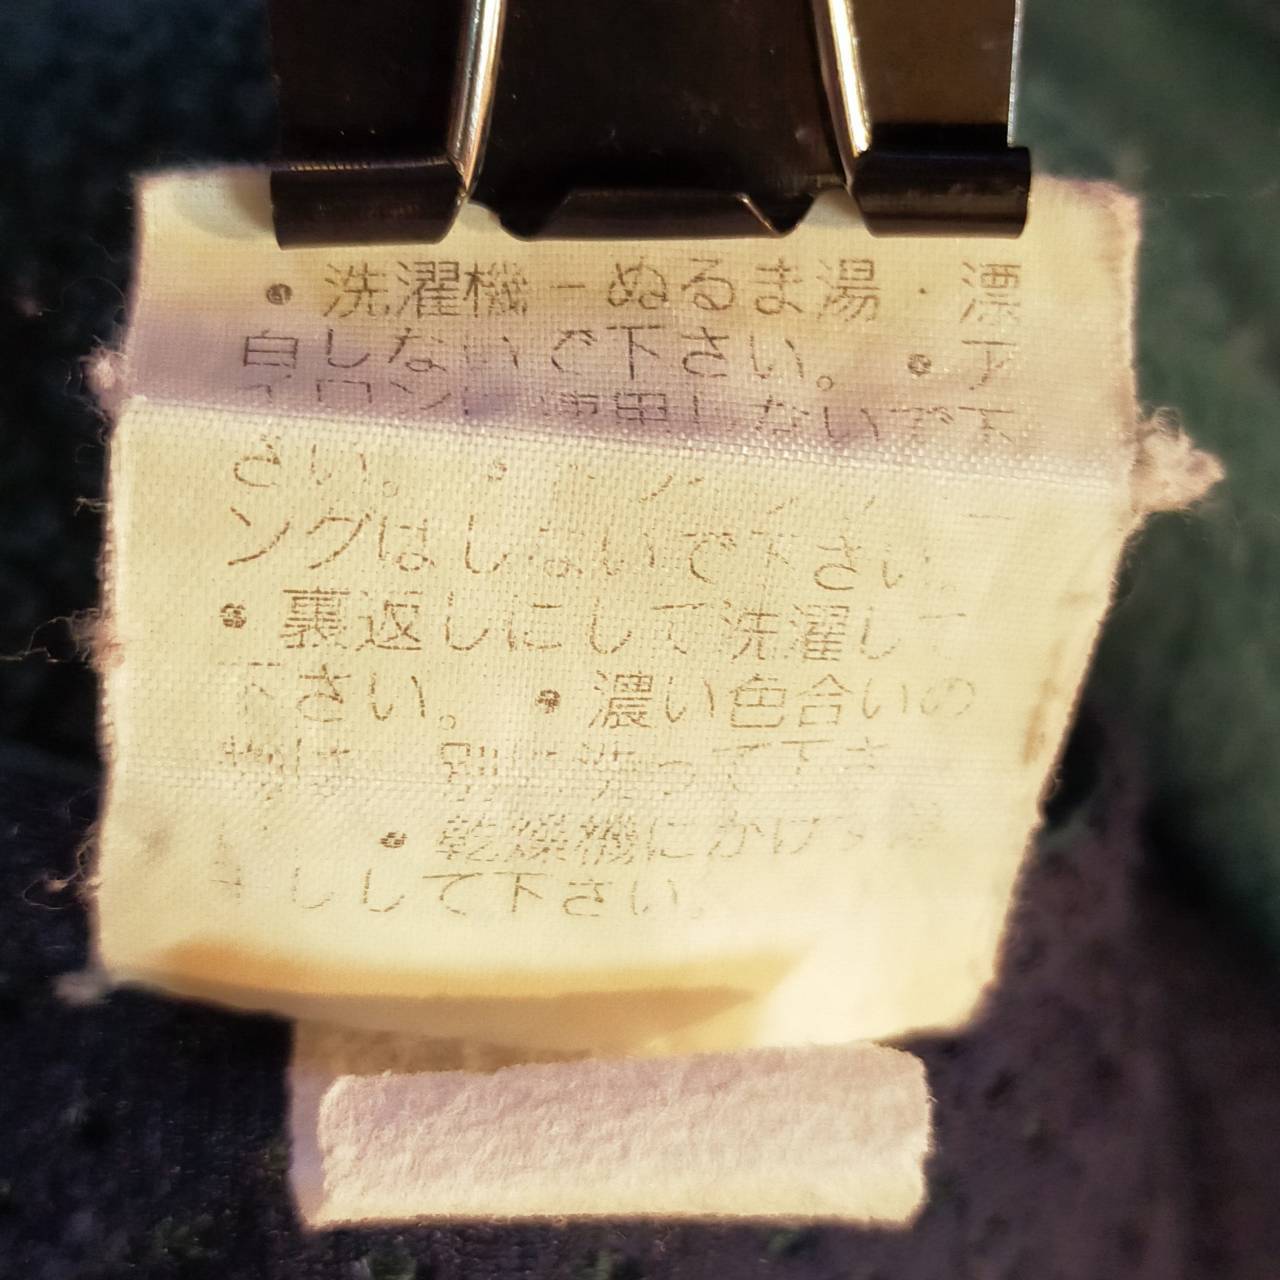 • 洗濯機－ぬるま湯・漂
白しないで下さい。 • ア
イロンは使用しないで下
さい。 •
ングはしないで下さい。
• 裏返しにして洗濯して
下さい。 • 濃い色合いの
物は 別に洗って下さ
• 乾燥機にかけ
しして下さい。